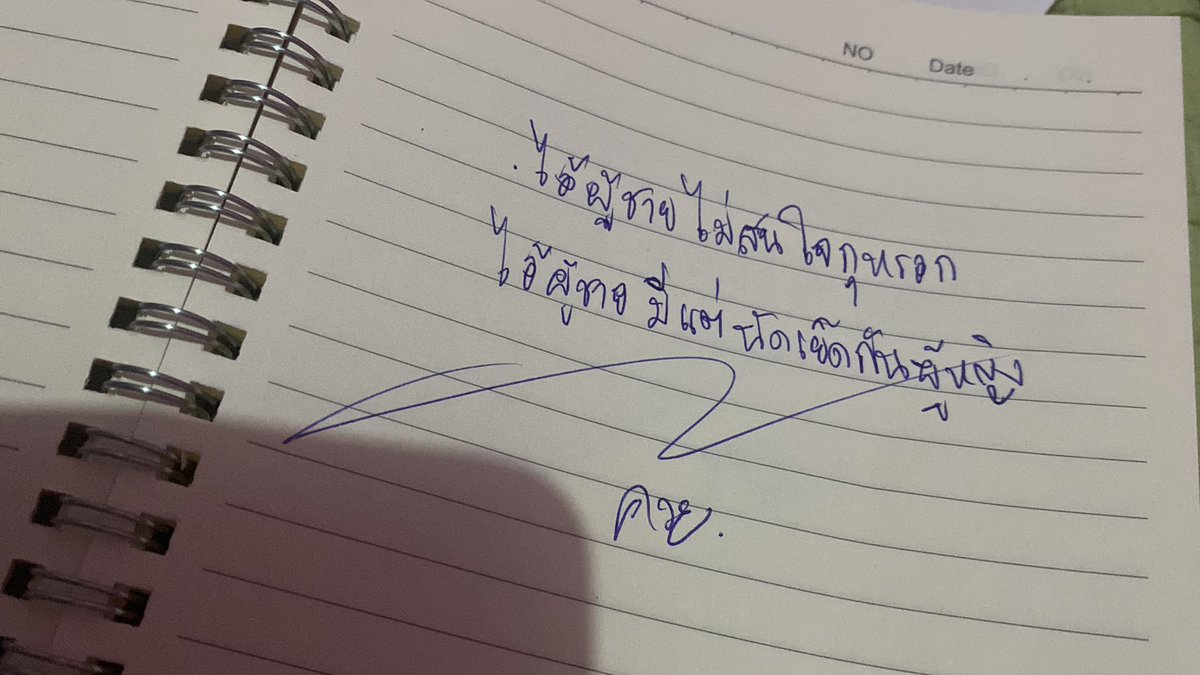 NO Date
ไอ้ผู้ชายไม่สนใจกุหรอก
ไอ้ผู้ชายมีแต่นัดเย็ดกันผู้หญิง
ควย.